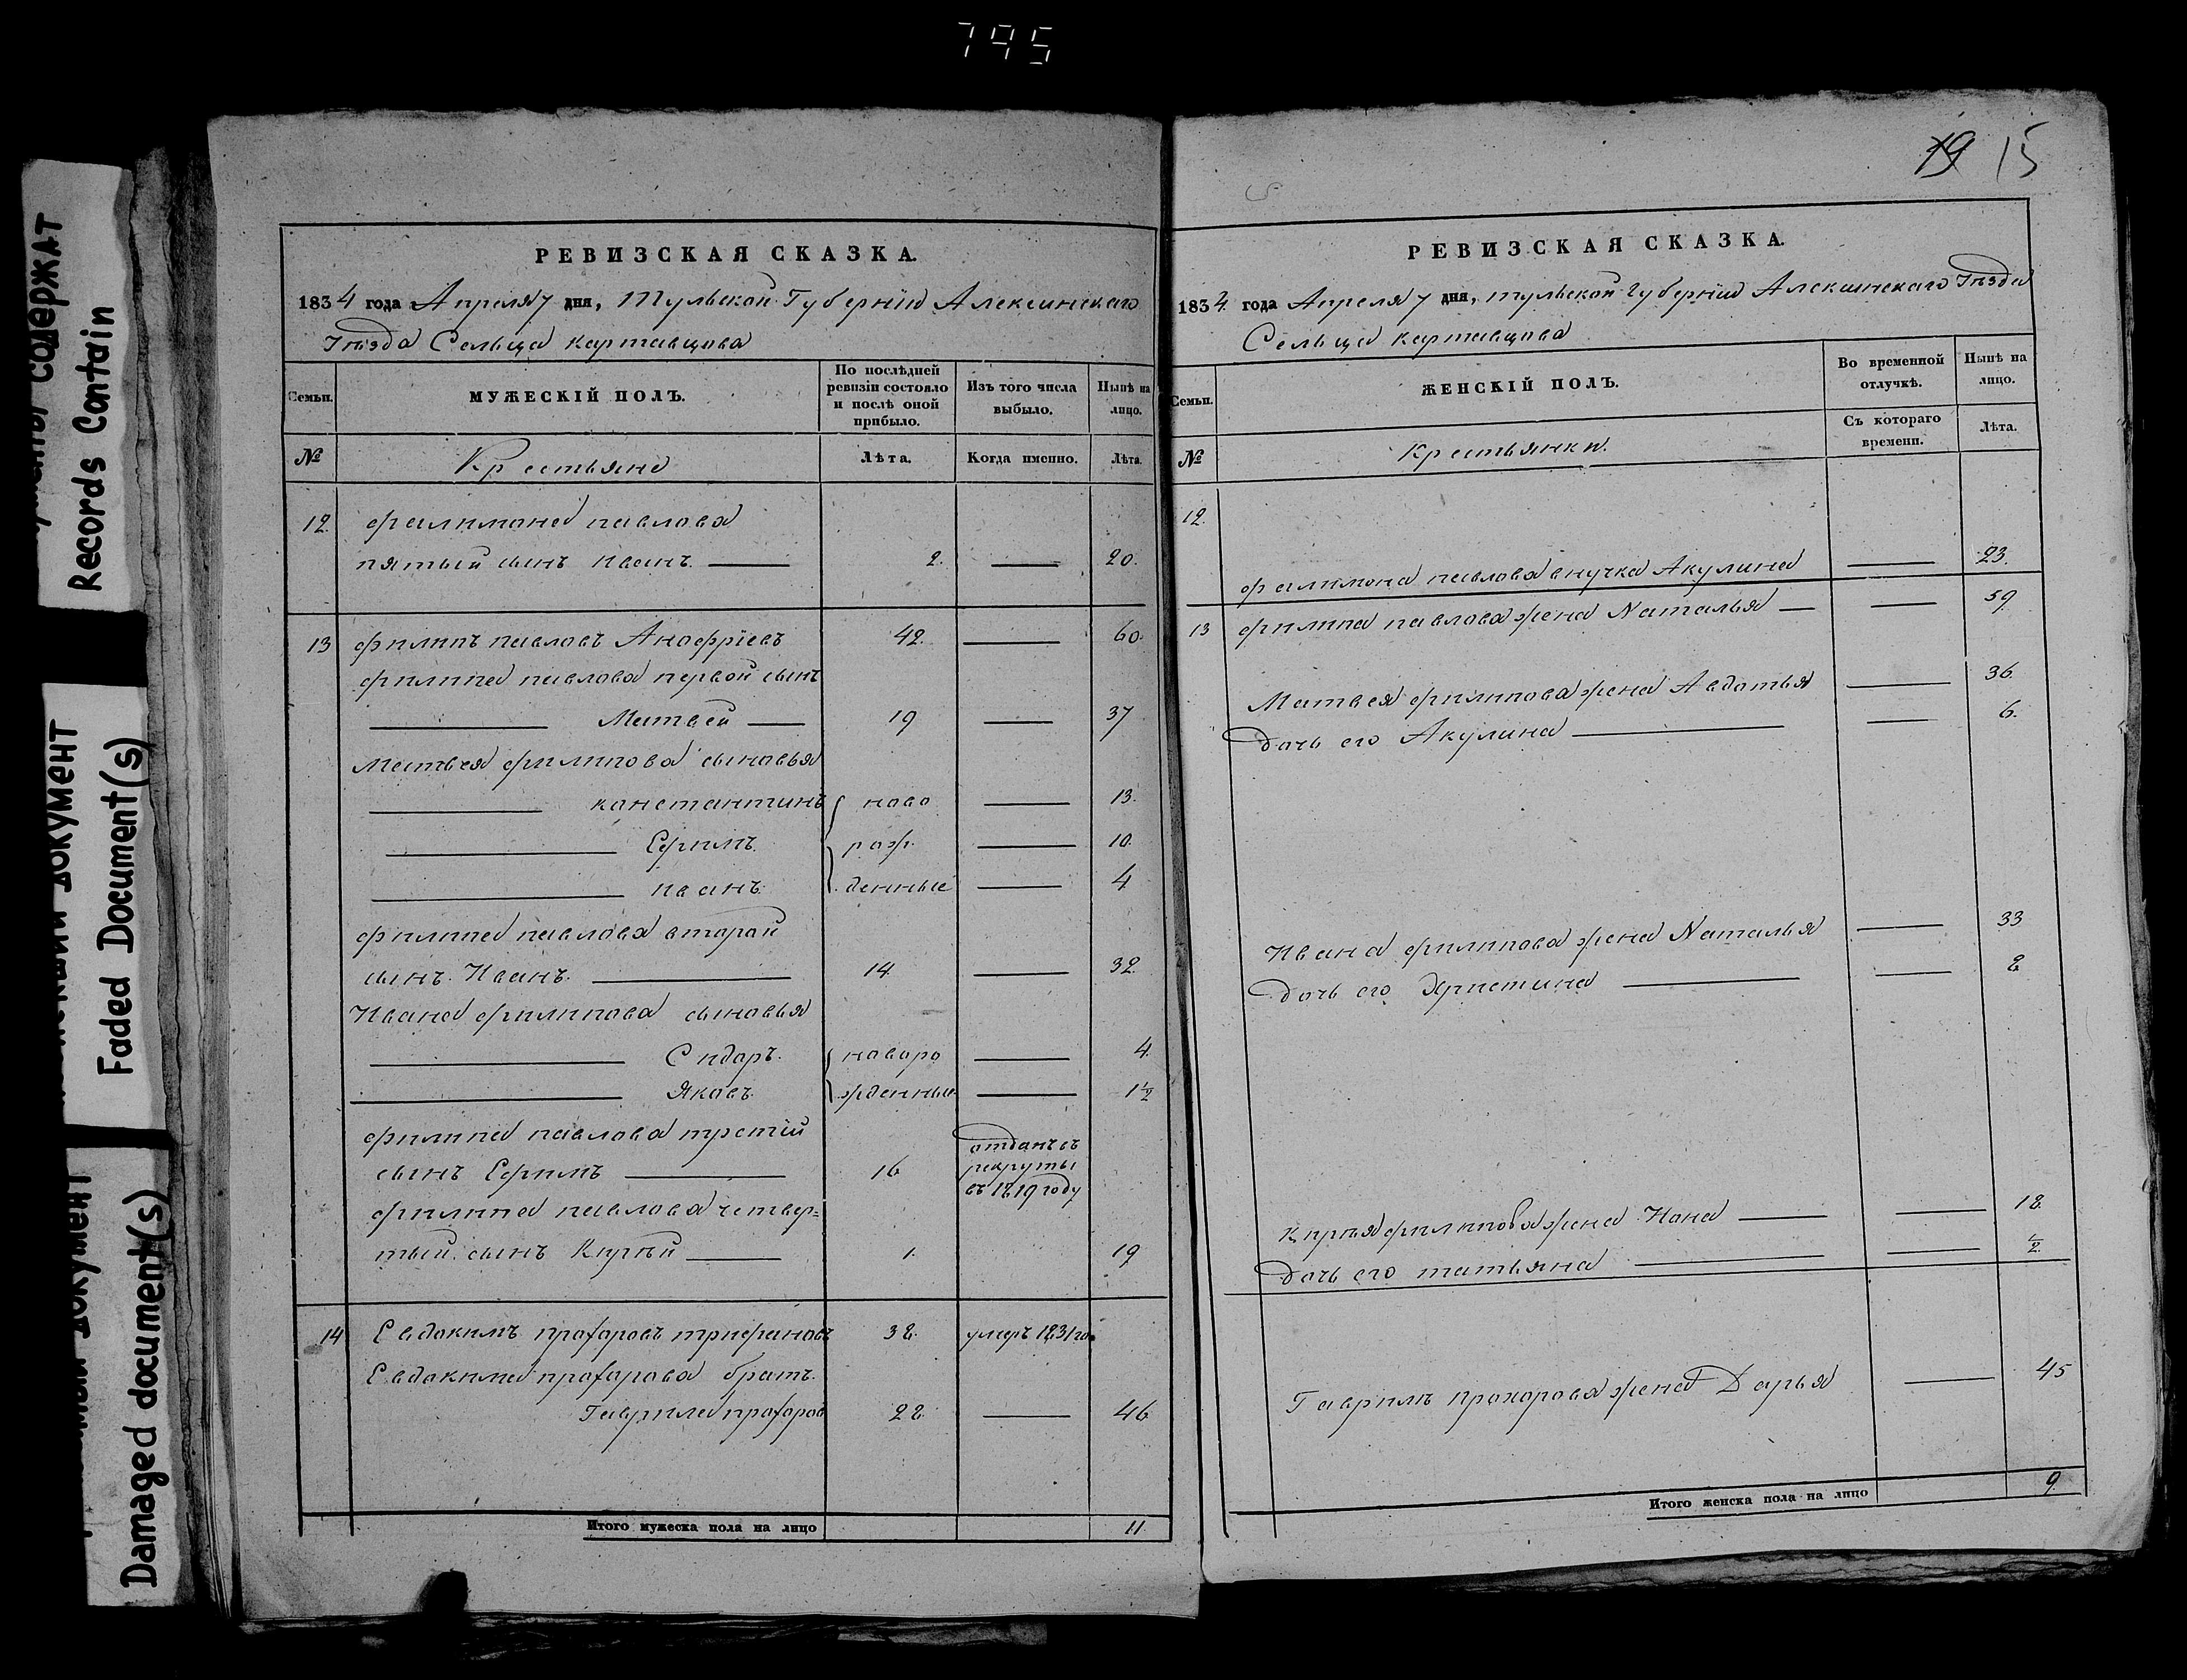 795
СОДЕРЖАТ
Records Contain
ДОКУМЕНТ
Faded Document(s)
ДОКУМЕНТ
Damaged document(s)
РЕВИЗСКАЯ СКАЗКА.
1834 года Апреля 7 дня, Тульской Губернiи Алексинскаго
Уѣзда Сельца картавцова
Семьи.
МУЖЕСКІЙ ПОЛЪ.
По послѣдней
ревизіи состояло
и послѣ оной
прибыло.
Изъ того числа
выбыло.
Нынѣ на
лицо.
№ Крестьяне Лѣта. Когда именно. Лѣта.
12. филимона павлова
пятый сынъ иванъ. 2. 20.
13 филипъ павловъ Анофрiевъ 42. 60.
филипа павлова первой сынъ
Матвей 19 37
Матвея филипова сыновья
константинъ ново 13.
Ефимъ рож. 10.
иванъ денные 4
филипа павлова второй
сынъ Иванъ. 14 32.
Ивана филипова сыновья
Сидоръ. новоро 4.
Яковъ. жденные 1 1/2
филипа павлова третiй
отданъ въ
сынъ Ефимъ 16 рекруты
въ 1819 году
филипа павлова четвер=
тый сынъ Кирѣй 1. 19
14 Евдокимъ прохоровъ трифановъ 38. умеръ 1831 го.
Евдокима прохорова братъ.
Гаврила прохоров 28. 46
Итого мужеска пола на лицо 11
19 15
РЕВИЗСКАЯ СКАЗКА.
1834. года Апреля 7 дня, тульской губернiи Алексинскаго Уѣзда
Сельца картавцова
Семьи.
ЖЕНСКІЙ ПОЛЪ.
Во временной
отлучкѣ.
Нынѣ на
лицо.
№ Крестьянки.
Съ котораго
времени.
Лѣта.
12.
филимона павлова внучка Акулина 23.
13 филипа павлова жена Наталья 59
Матвея филипова жена Авдотья 36.
дочь его Акулина 6.
Ивана филипова жена Наталья 33
дочь его Христина 8
Кирѣя филипова жена 18.
дочь его татьяна 1/2.
Гаврилъ прохорова жена Дарья 45
Итого женска пола на лицо 9.